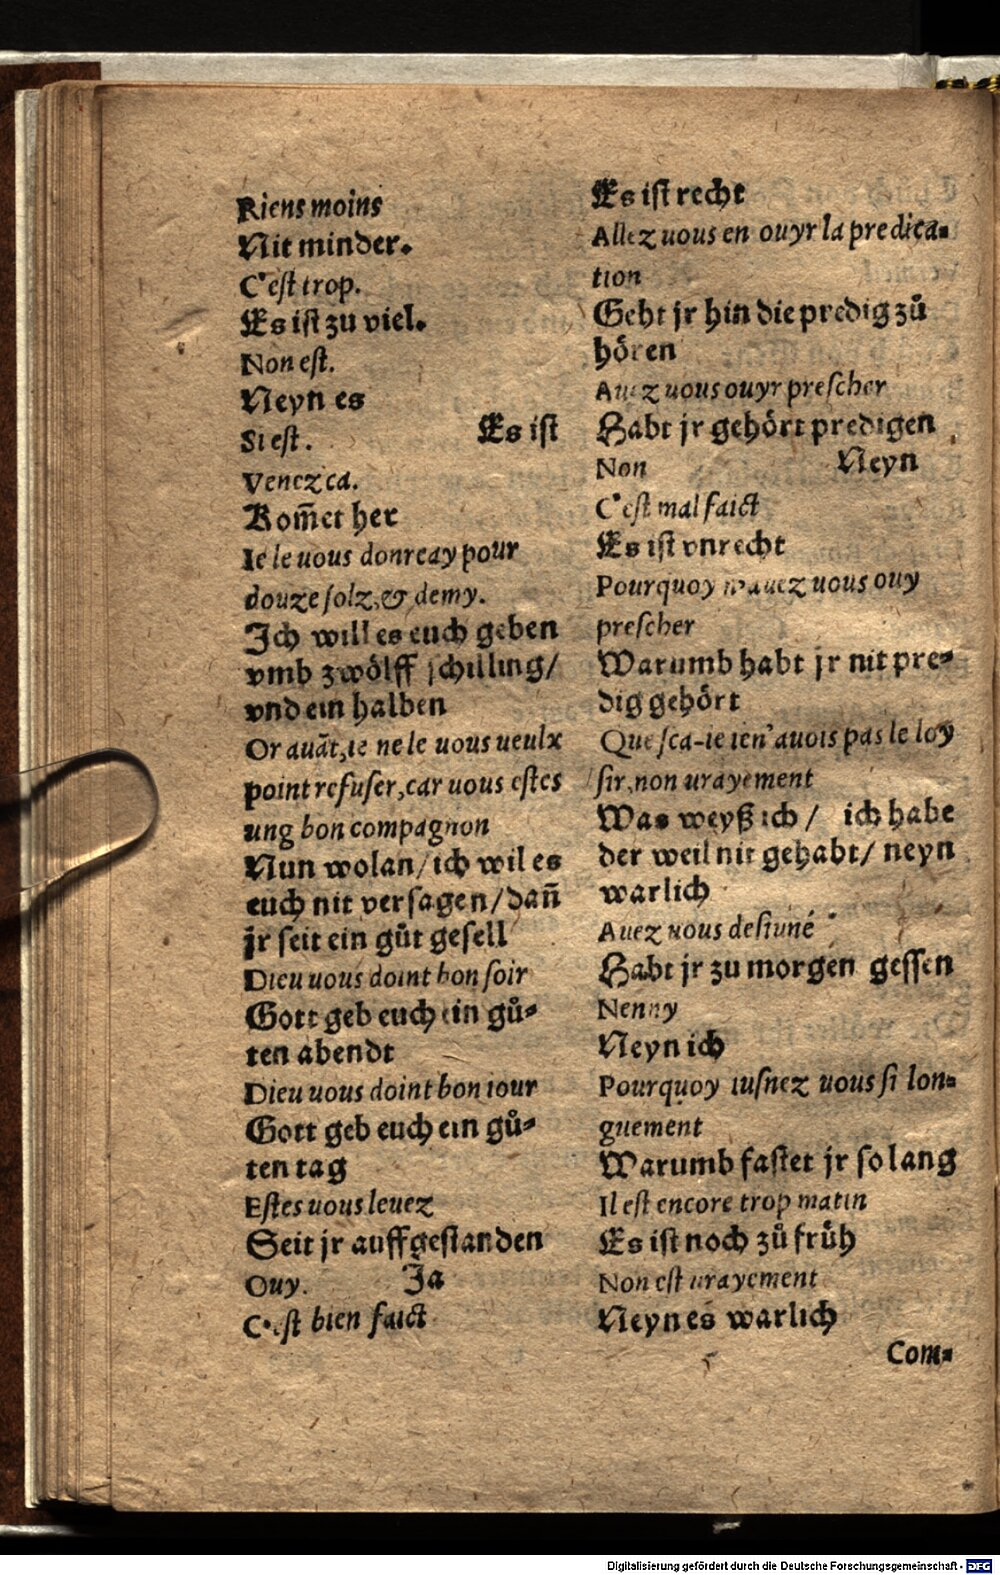 Riens moins
Nit minder.
C'est trop.
Es ist zu viel.
Non est.
Neyn es
Si est. Es ist
Venez ca.
Kom̄et her
Ie le uous donreay pour
douze solz, & demy.
Ich will es euch geben
vmb zwölff schilling/
vnd ein halben
Or auāt, ie ne le uous ueulx
point refuser, car uous estes
ung bon compagnon
Nun wolan/ ich wil es
euch nit versagen/ dan̄
jr seit ein gůt gesell
Dieu uous doint bon soir
Gott geb euch ein gů⸗
ten abendt
Dieu uous doint bon iour
Gott geb euch ein gů⸗
ten tag
Estes uous leuez
Seit jr auffgestanden
Ouy. Ja
C'est bien faict
Es ist recht
Allez uous en ouyr la predica⸗
tion
Geht jr hin die predig zů
hören
Auez uous ouyr prescher
Habt jr gehört predigen
Non Neyn
C'est mal faict
Es ist vnrecht
Pourquoy uous ouy
prescher
Warumb habt jr nit pre⸗
dig gehört
Que sca-ie ien'auois pas le loy
sir, non urayement
Was weyß ich/ ich habe
der weil nit gehabt/ neyn
warlich
Auez uous desiuné
Habt jr zu morgen gessen
Nenny
Neyn ich
Pourquoy iusnez uous si lon⸗
guement
Warumb fastet jr so lang
Il est encore trop matin
Es ist noch zů früh
Non est urayement
Neyn es warlich
Com⸗
Digitalisierung gefördert durch die Deutsche Forschungsgemeinschaft - DFG